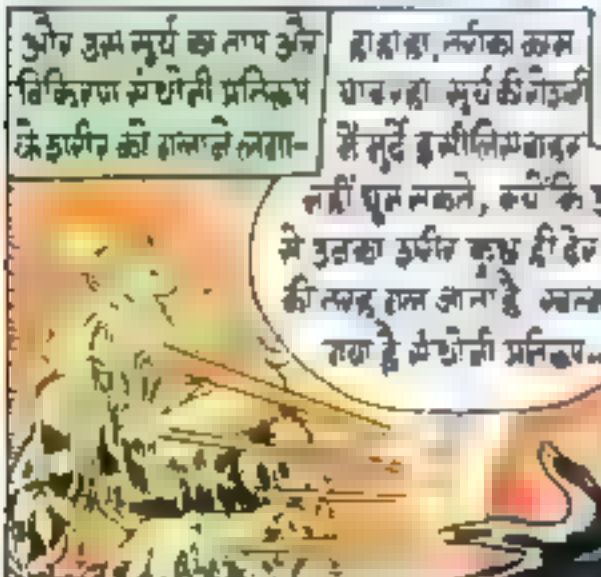 और उस सूर्य का ताप और
विकिरण मंथोली प्रतिरूप
के शरीर को गलाने लगा-
हाहाहा. तरीका काम
कर रहा सूर्य की रोशनी
में मुर्दे इसीलिए बाहर
नहीं घूम सकते, क्योंकि
से उनका शरीर कुछ ही देर
की तरह गल जाता है
रहा है मंथोली प्रतिरूप..